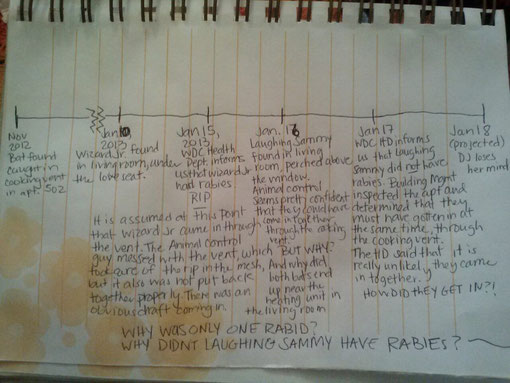 Nov
2012
Bat found
caught in
cooking vent
in apt. 502
Jan 10,
2013
Wizard Jr. found
in living room, under
the love seat.
Jan 15,
2013
WDC Health
Dept. informs
us that wizard Jr
had rabies.
RIP
It is assumed at this point
that Wizard Jr. came in through
the vent. The Animal control
guy messed with the vent, which
took care of the rip in the mesh,
but it also was not put back
together properly. There was an
obvious draft coming in.
Jan. 16
Laughing Sammy
found in living
room, perched above
the window.
Animal control
seems pretty confident
that they could have
come in together
through the cooking
vent.
BUT WHY
And why did
both bats end
up near the
heating unit in
the living room
Jan 17
WDC HD informs
us that laughing
sammy did not have
rabies. Building Mgmt
inspected the apt and
determined that they
must have gotten in at
the same time, through
the cooking vent.
The HD said that it is
really unlikely they came
in together.
HOW DID THEY GET IN?!
Jan 18
(projected)
DJ loses
her mind
WHY WAS ONLY ONE RABID?
WHY DIDNT LAUGHING SAMMY HAVE RABIES?